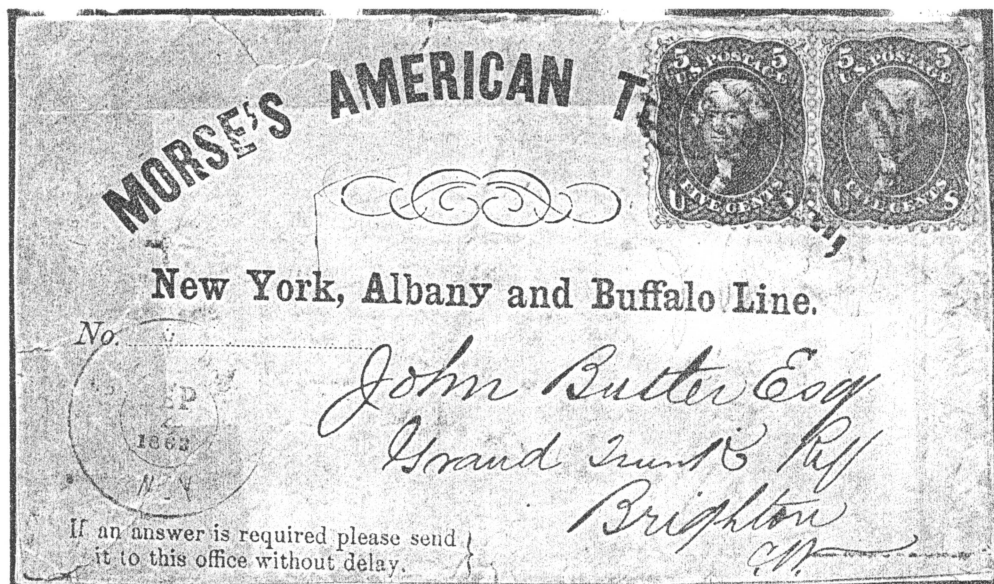 MORSE'S AMERICAN
5 5
U.S. POSTAGE
FIVE CENTS
U S
5 5
U.S. POSTAGE
FIVE CENTS
U S
New York, Albany and Buffalo Line.
No.
SEP
1863
N.Y
John Butler Esq
Grand Trunk
Brighton
C.W.
If an answer is required please send
it to this office without delay.